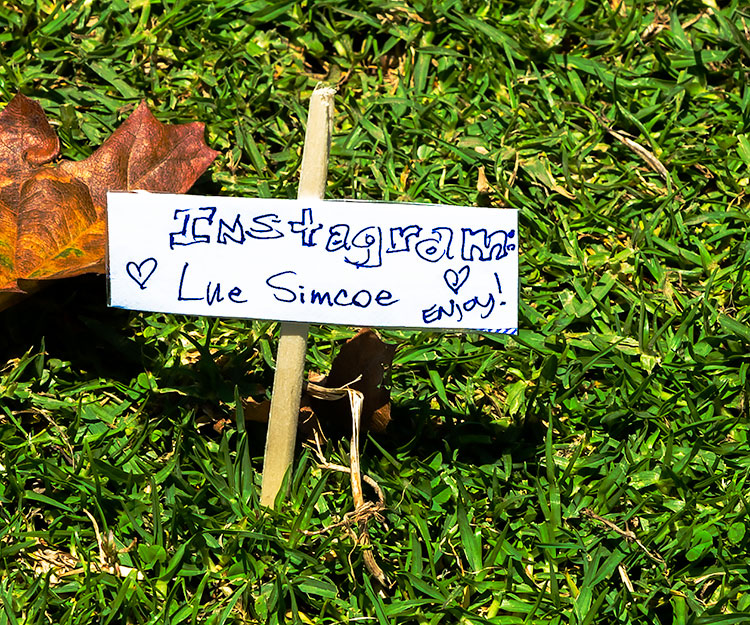 Instagram:
Lue Simcoe
Enjoy!